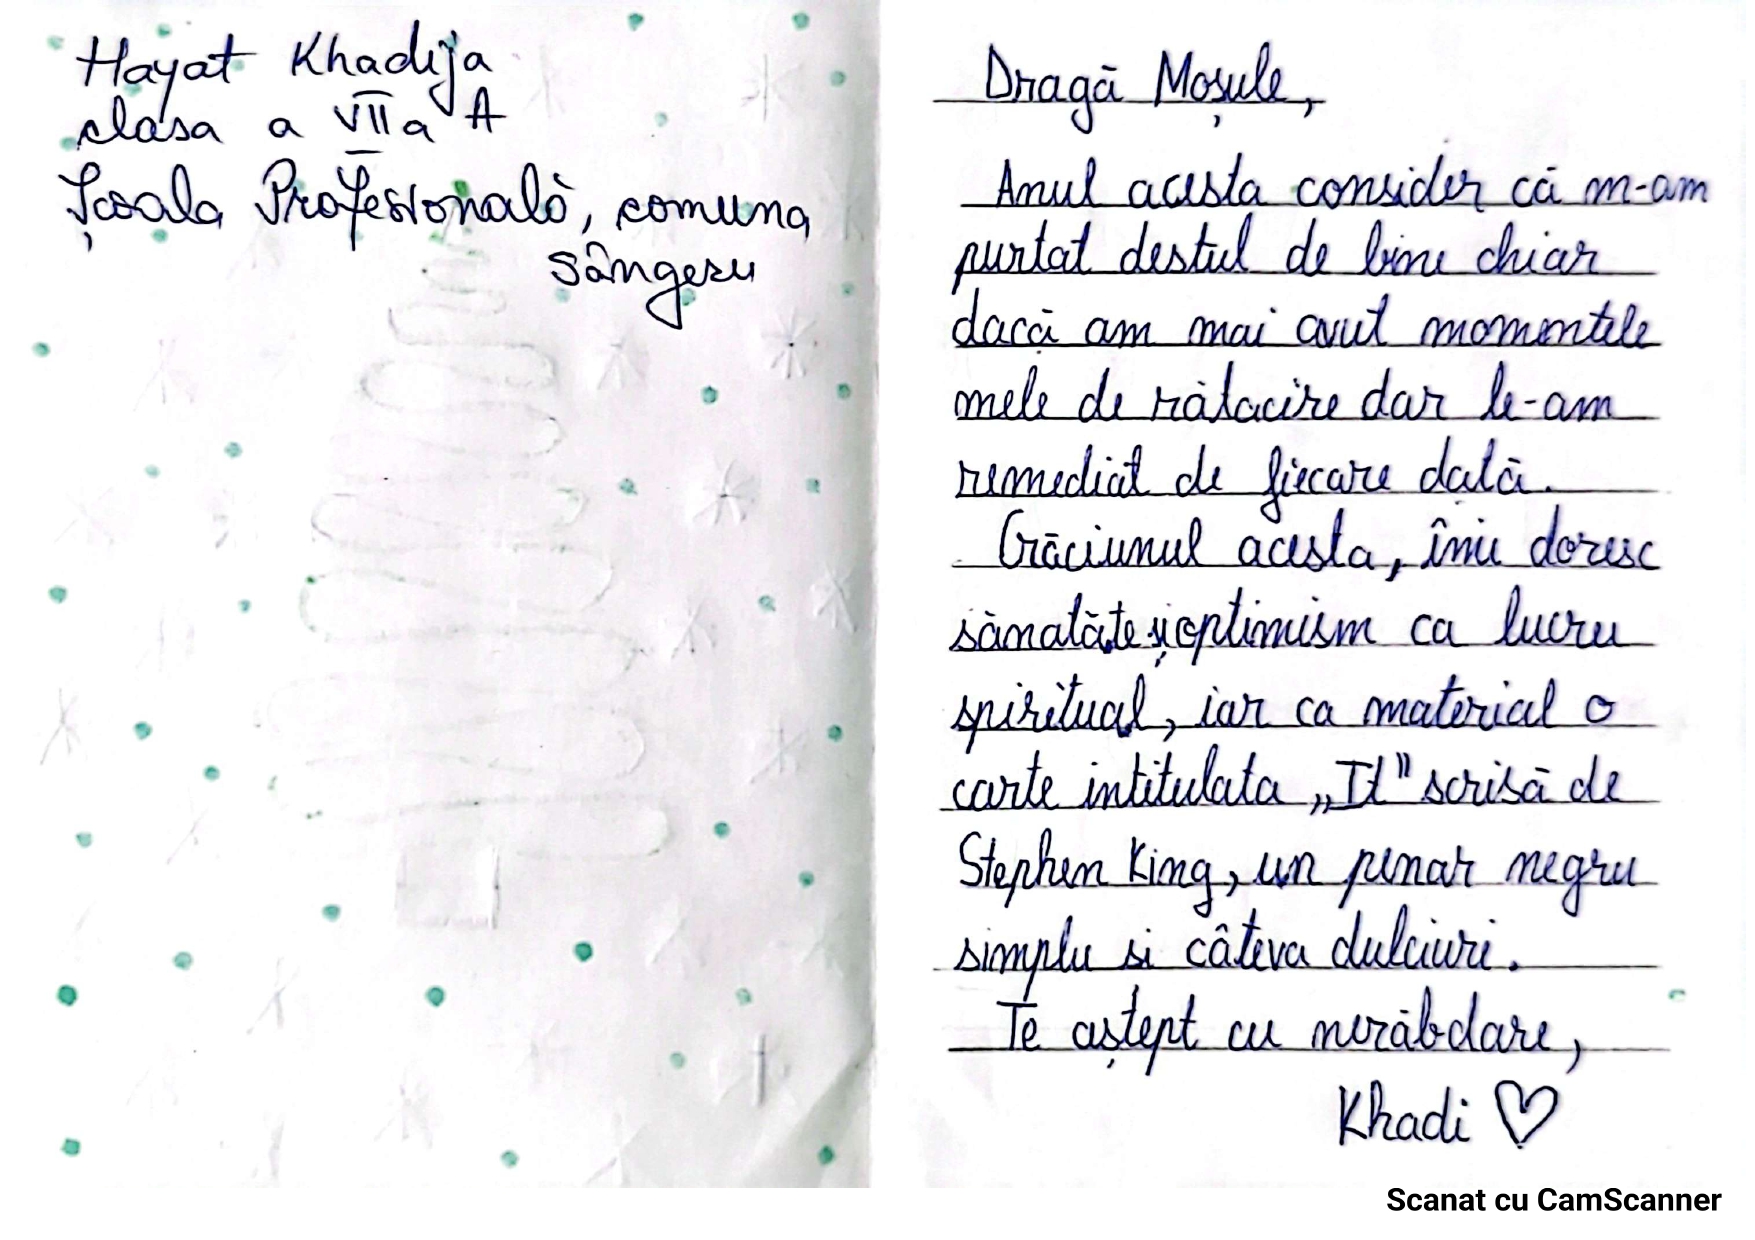 Hayat Khadija
clasa a VII a A
Școala Profesională, comuna
Sângeru
Dragă Moșule,
Anul acesta consider că m-am
purtat destul de bine chiar
dacă am mai avut momentele
mele de rătacire dar le-am
remediat de fiecare dată.
Crăciunul acesta, îmi doresc
sănatăte și optimism ca lucru
spiritual, iar ca material o
carte intitulata „It" scrisă de
Stephen King, un penar negru
simplu si câteva dulciuri.
Te aștept cu nerăbdare,
Khadi ♡
Scanat cu CamScanner